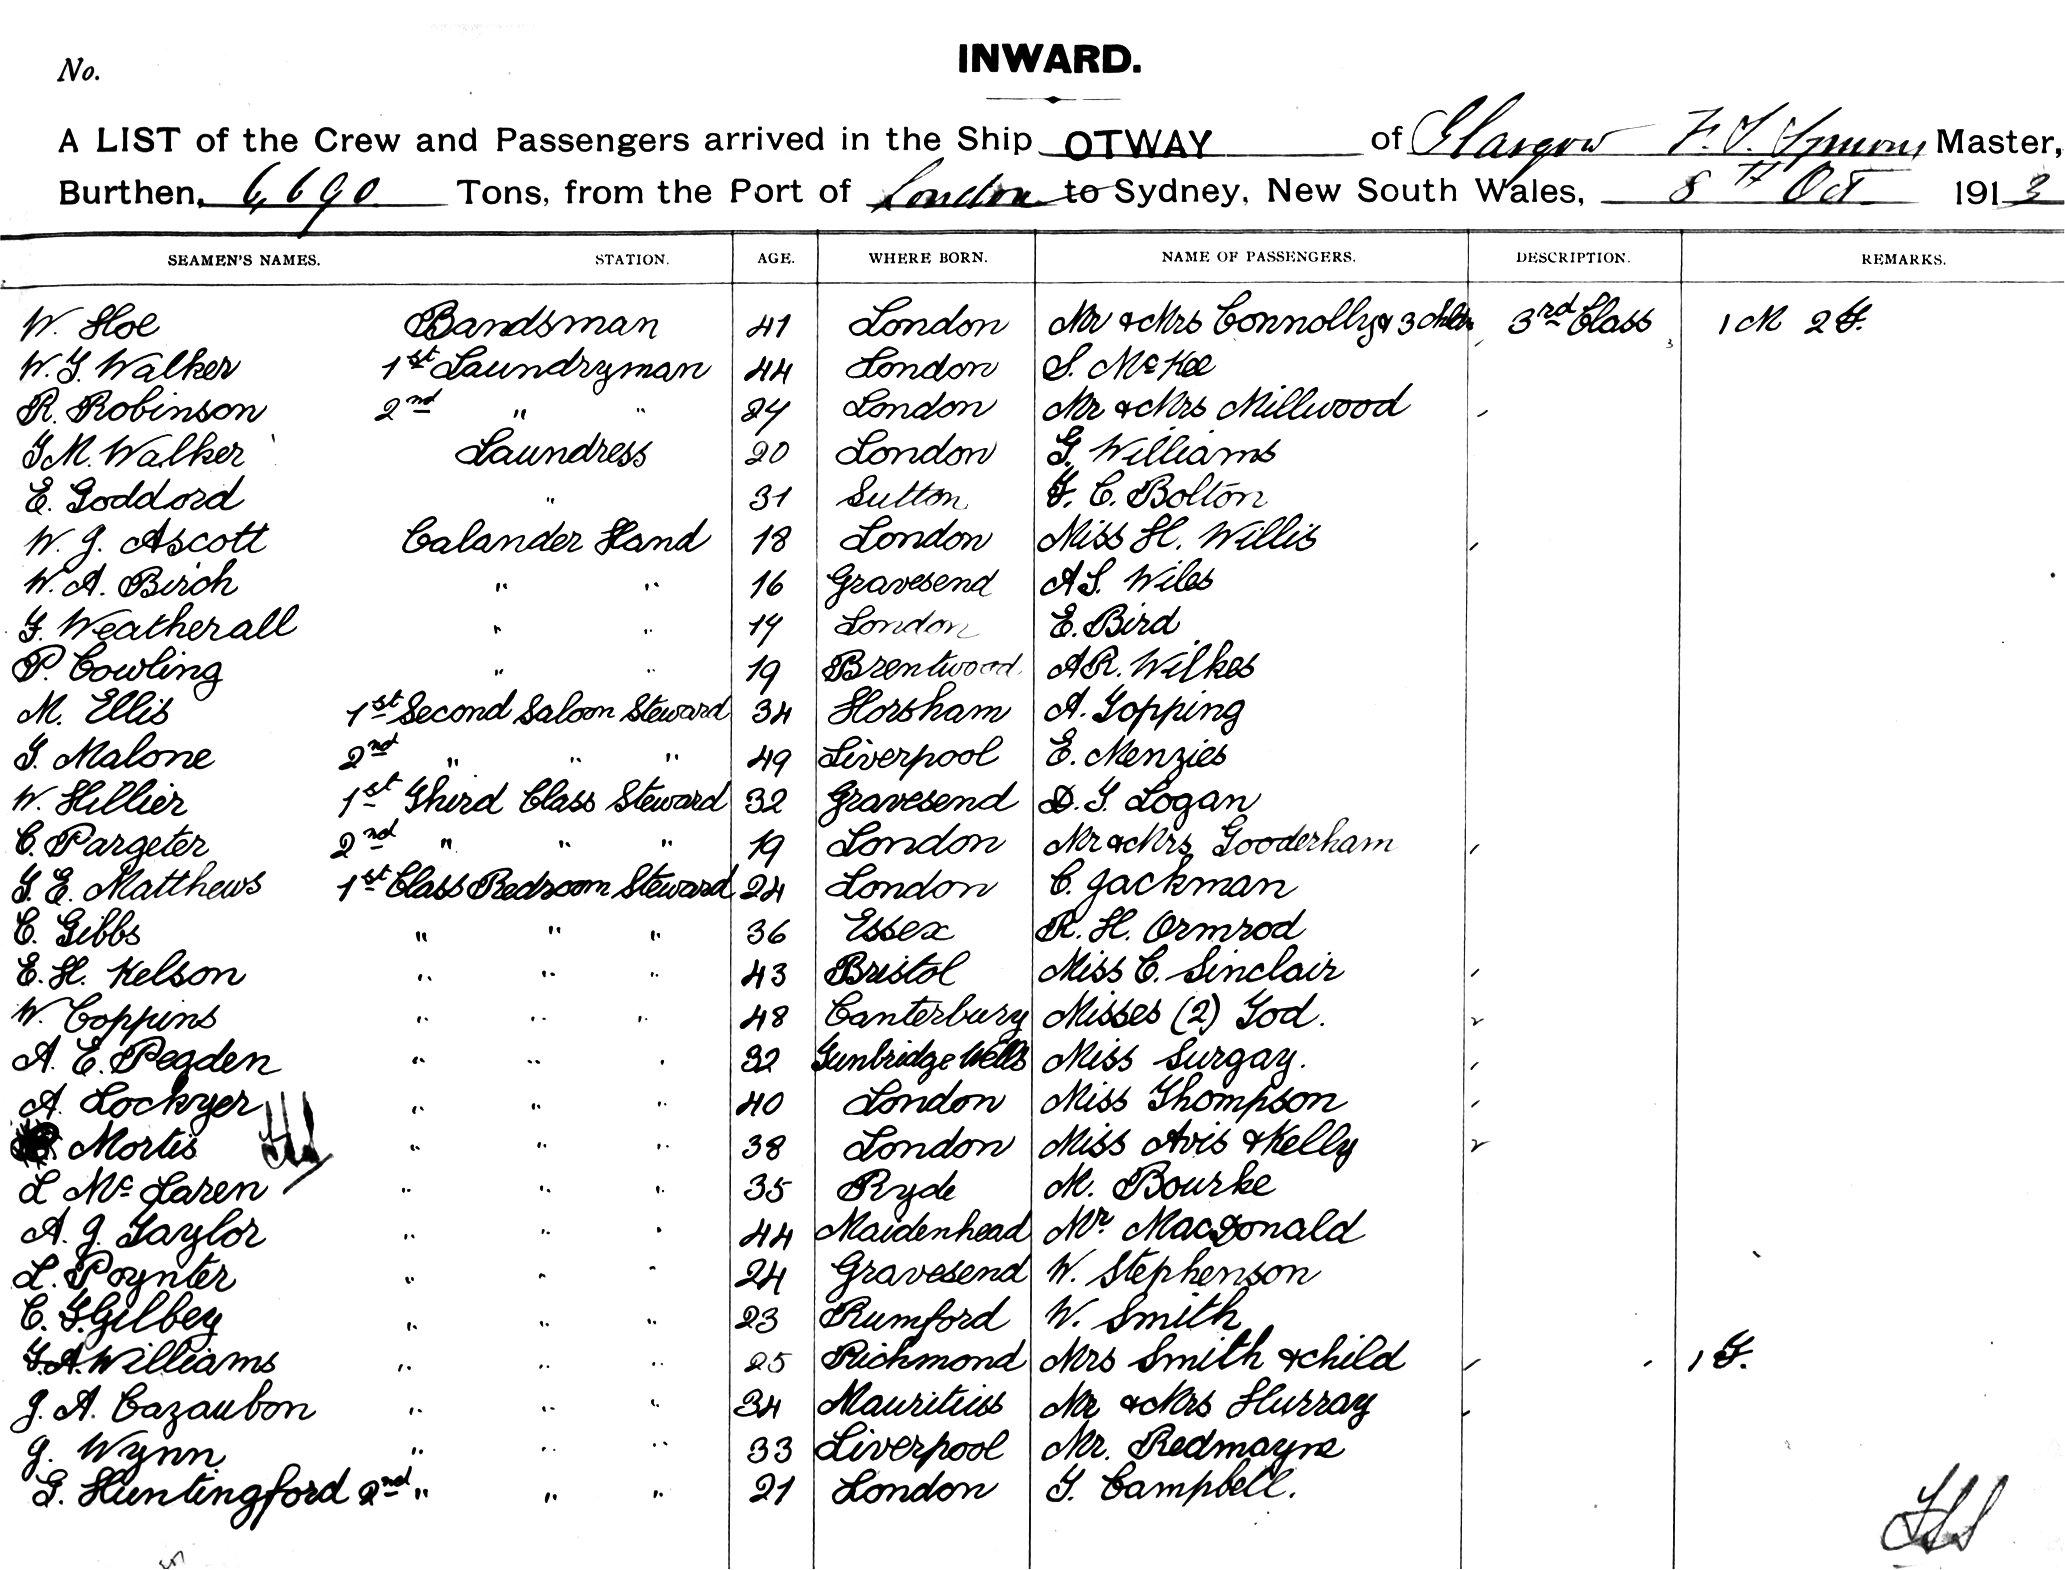 INWARD.
No.
A LIST of the Crew and Passengers arrived in the Ship OTWAY of Glasgow Master,
Burthen, 6,690 Tons, from the Port of London to Sydney, New South Wales, 8th Oct 1913
SEAMEN'S NAMES. STATION. AGE. WHERE BORN. NAME OF PASSENGERS. DESCRIPTION. REMARKS.
W. Hoe Bandsman 41 London Mr & Mrs Connolly & 3 chldn 3rd Class 1 M 2 F.
W. G. Walker 1st Laundryman 44 London S. McKee
R. Robinson 2nd " " 24 London Mr & Mrs Millwood
G M. Walker Laundress 20 London G. Williams
E. Goddord " 31 Sutton F. C. Bolton
W. J. Ascott Calander Hand 18 London Miss H. Willis
W. A. Birch " " 16 Gravesend A S. Wiles
G. Weatherall " " 19 London E. Bird
P. Cowling " " 19 Brentwood A R. Wilkes
M. Ellis 1st Second Saloon Steward 34 Horsham A. Topping
T. Malone 2nd " " " 49 Liverpool E. Menzies
W. Hillier 1st Third Class Steward 32 Gravesend D. T. Logan
C. Pargeter 2nd " " " 19 London Mr & Mrs Gooderham
G. E. Matthews 1st Class Bedroom Steward 24 London C. Jackman
C. Gibbs " " " 36 Essex R. H. Ormrod
E. H. Kelson " " " 43 Bristol Miss C. Sinclair
W. Coppins " " " 48 Canterbury Misses (2) Tod.
A. E. Pegden " " " 32 Tunbridge Wells Miss Surgay.
A. Lockyer " " " 40 London Miss Thompson
Mortis " " " 38 London Miss Avis & Kelly
L McLaren " " " 35 Ryde M. Bourke
A. J. Taylor " " " 44 Maidenhead Mr. MacDonald
L. Poynter " " " 24 Gravesend W. Stephenson
C. G. Gilbey " " " 23 Rumford W. Smith
G. A. Williams " " " 25 Richmond Mrs Smith & child 1 F.
J. A. Cazaubon " " " 34 Mauritius Mr & Mrs Hurray
J. Wynn " " " 33 Liverpool Mr. Redmayne
G. Huntingford 2nd " " " 21 London T. Campbell.